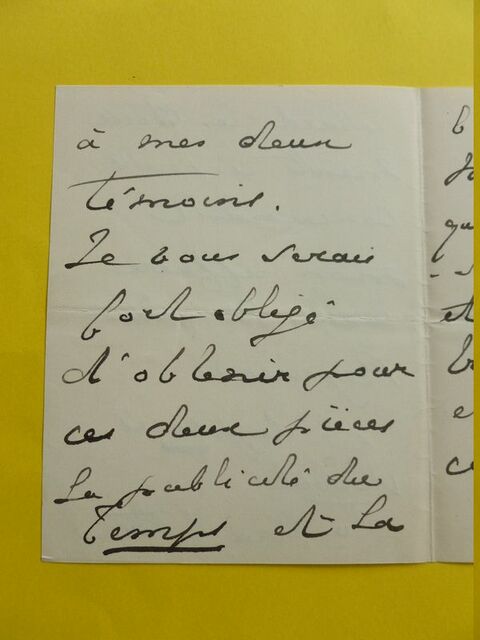 à mes deux
témoins.
Je vous serais
fort obligé
d'obtenir pour
ces deux pièces
la publicité du
Temps et la